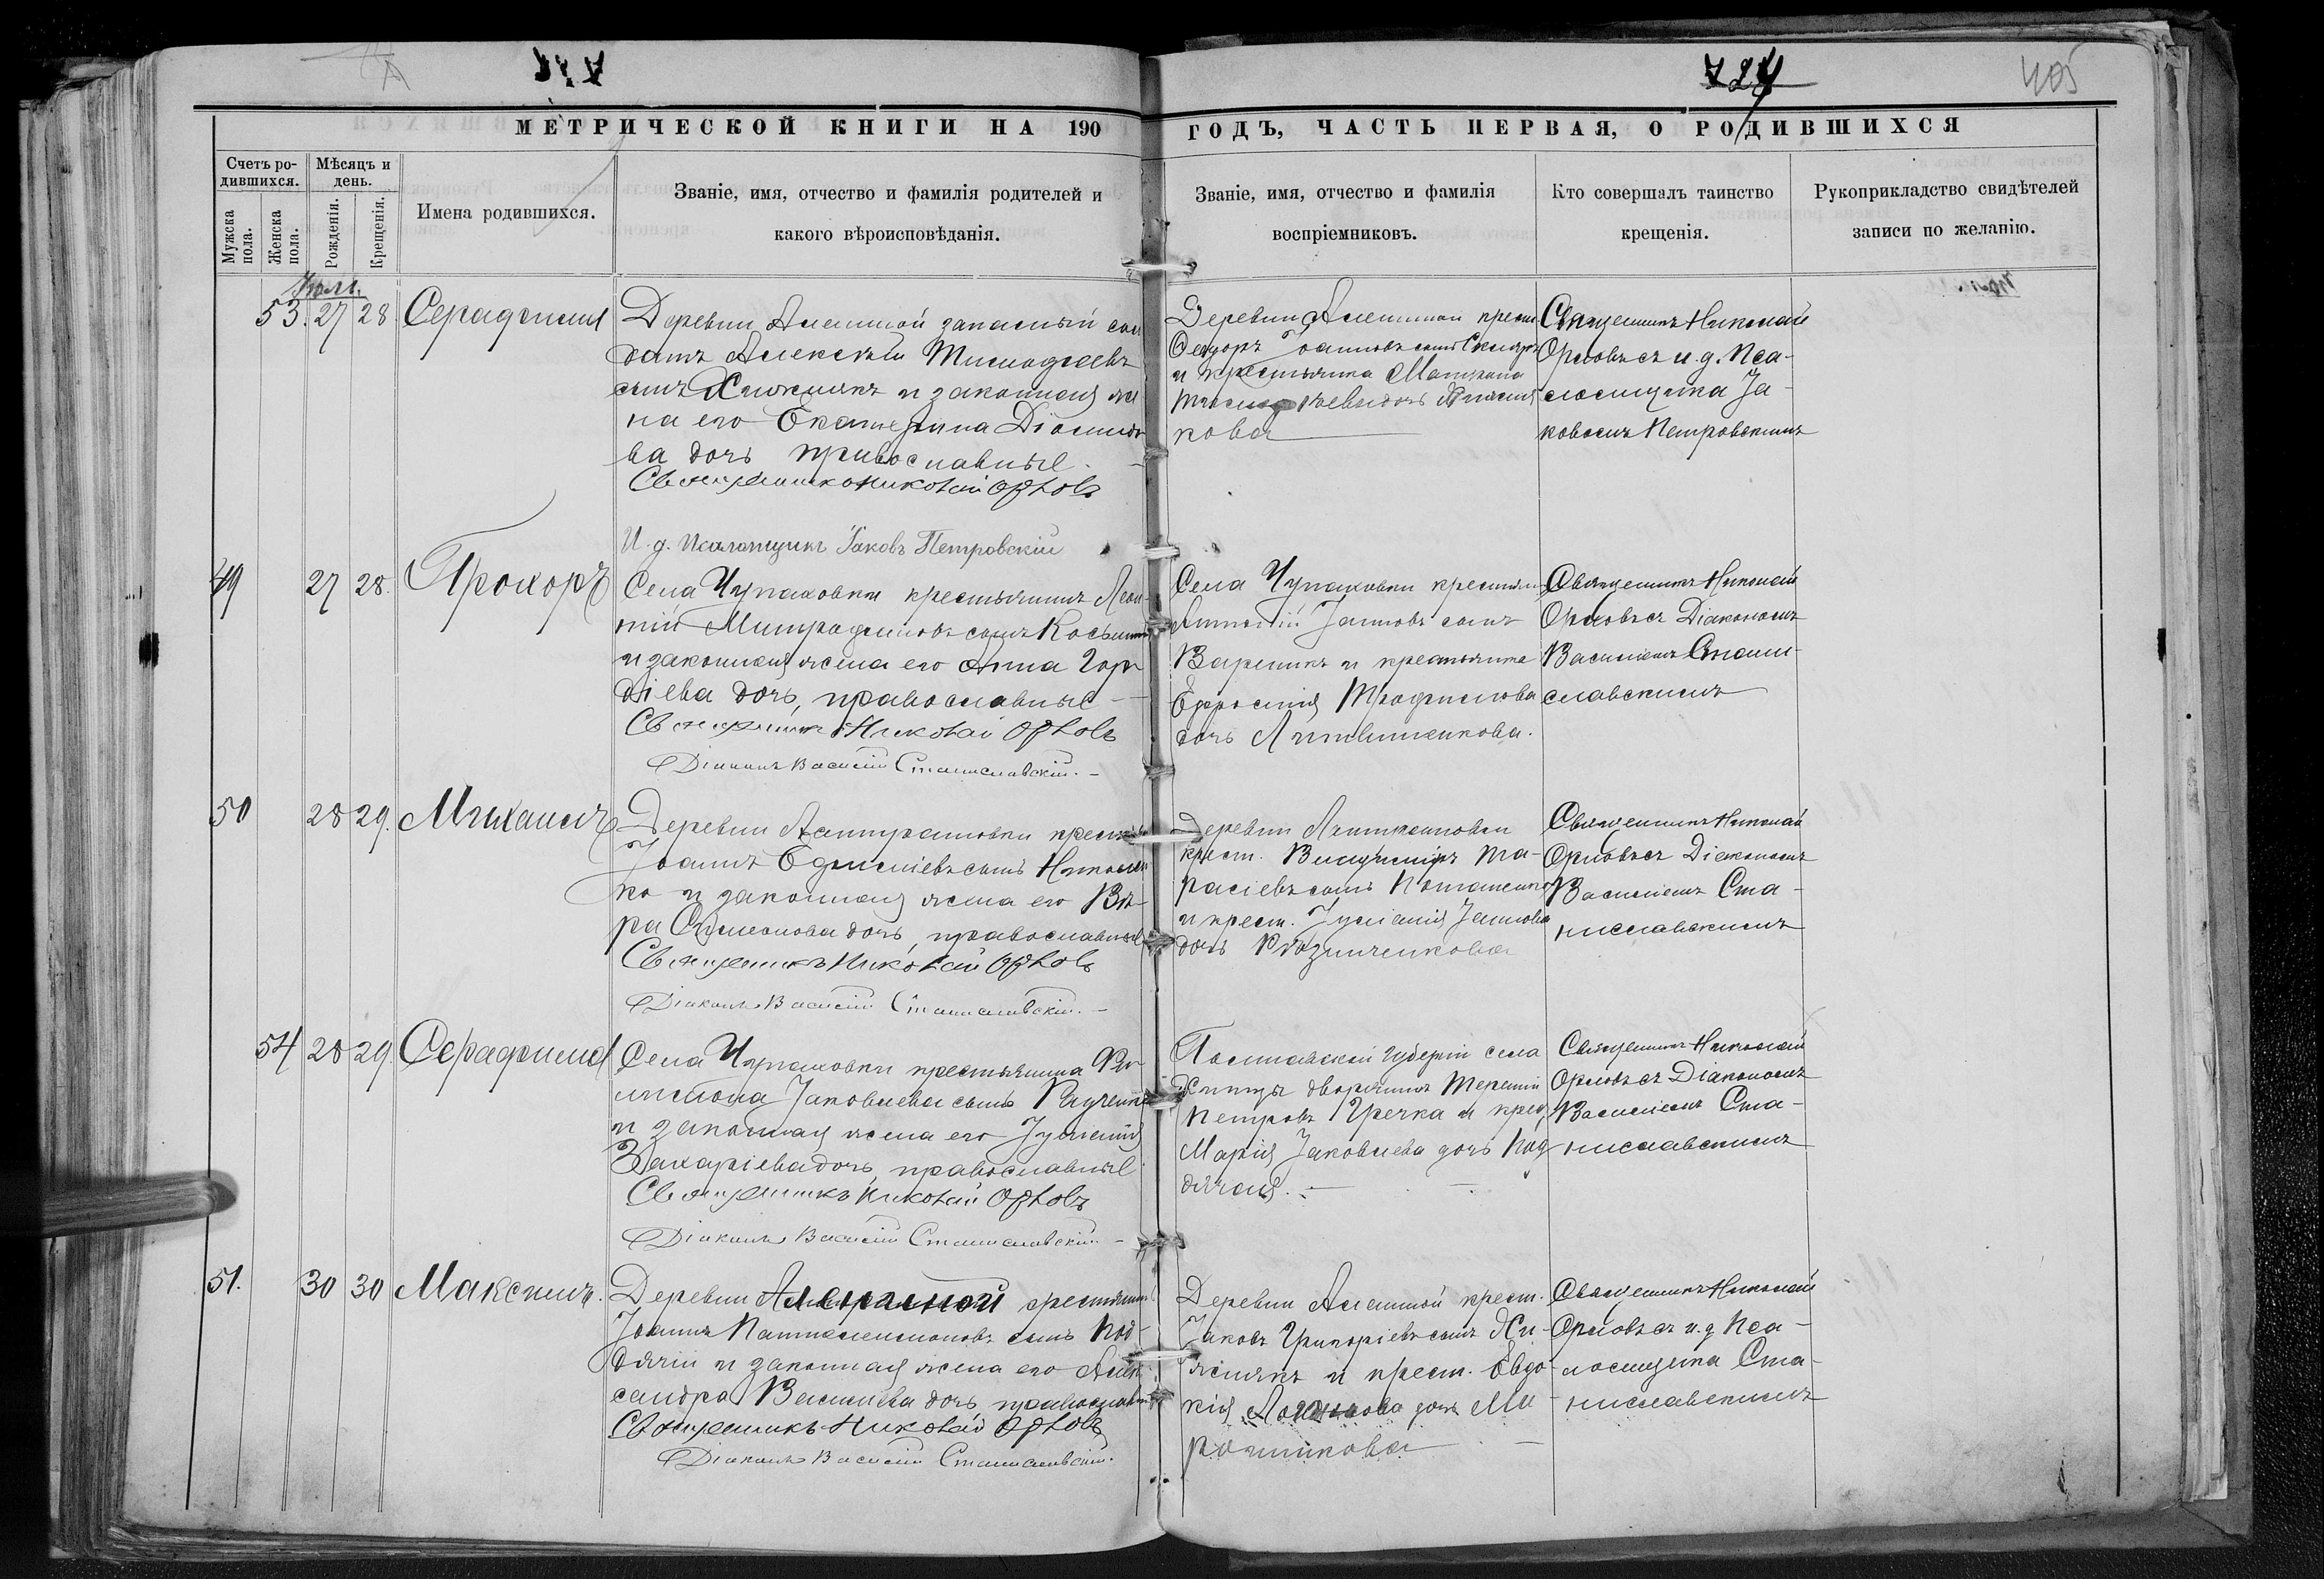 405
МЕТРИЧЕСКОЙ КНИГИ НА 190 ГОДЪ, ЧАСТЬ ПЕРВАЯ, О РОДИВШИХСЯ
Счетъ ро-
дившихся.
Мужска пола.
Женска пола.
Мѣсяцъ и
день.
Рожденія.
Крещенія.
Имена родившихся.
Званіе, имя, отчество и фамилія родителей и
какого вѣроисповѣданія.
Званіе, имя, отчество и фамилія
воспріемниковъ.
Кто совершалъ таинство
крещенія.
Рукоприкладство свидѣтелей
записи по желанію.
Іюль
53. 27 28 Серафима
Деревни Алешиной запасный сол
датъ Алексѣй
сынъ Хижнякъ и законная же
на его Екатерина
ва дочь православные.
Священникъ Николай Орловъ
И. д. Псаломщика Іаковъ Петровскій
Деревни Алешиной крест
Ѳеодоръ Іоанновъ сынъ Скляръ
и крестьянка Матрона
дочь Хижня
кова
Священникъ Николай
Орловъ съ и. д. Пса-
ломщика Іа-
ковомъ Петровскимъ
49 27 28. Прохоръ
Села Чупаховки крестьянинъ Леон-
тій Митрофановъ сынъ
и законная жена его Анна Гор
діева дочь, православные
Священникъ Николай Орловъ
Діаконъ Василій Станиславскій.
Села Чупаховки крестьян
Антоній Іоанновъ сынъ
Вареникъ и крестьянка
Ефросинія Трофимова
дочь Литвиненкова.
Священникъ Николай
Орловъ съ Діакономъ
Василіемъ Стани-
славскимъ
50 28 29. Михаилъ
Деревни крест
Іоаннъ сынъ Николаен
ко и законная жена его Вѣ-
ра Симеонова дочь, православные
Священникъ Николай Орловъ
Діаконъ Василій Станиславскій.
Деревни
крест. Владиміръ Та-
расіевъ сынъ Потапенко
и крест. Іуліанія Іоаннова
дочь
Священникъ Николай
Орловъ съ Діакономъ
Василіемъ Ста-
ниславскимъ
54 28 29 Серафима
Села Чупаховки крестьянина Фи
Іаковлева сынъ Радченко
и законная жена его Іуліанія
Захаріева дочь, православные
Священникъ Николай Орловъ
Діаконъ Василій Станиславскій.
Полтавской губерніи села
дворянинъ Терентій
Петровъ Гречка и крес.
Марія Іаковлева дочь Под
дячая.
Священникъ Николай
Орловъ съ Діакономъ
Василіемъ Ста-
ниславскимъ
51. 30 30 Максимъ.
Деревни Алешиной крестьянин
Іоаннъ Пантелеимоновъ сынъ Под-
дячій и законная жена его Алек
сандра Василіева дочь православн
Священникъ Николай Орловъ
Діаконъ Василій Станиславскій.
Деревни Алешиной крест.
Іаковъ Григоріевъ сынъ Хи-
жнякъ и крест. Евдо-
кія дочь Ми
Священникъ Николай
Орловъ съ и. д Пса-
ломщика Ста-
ниславскимъ